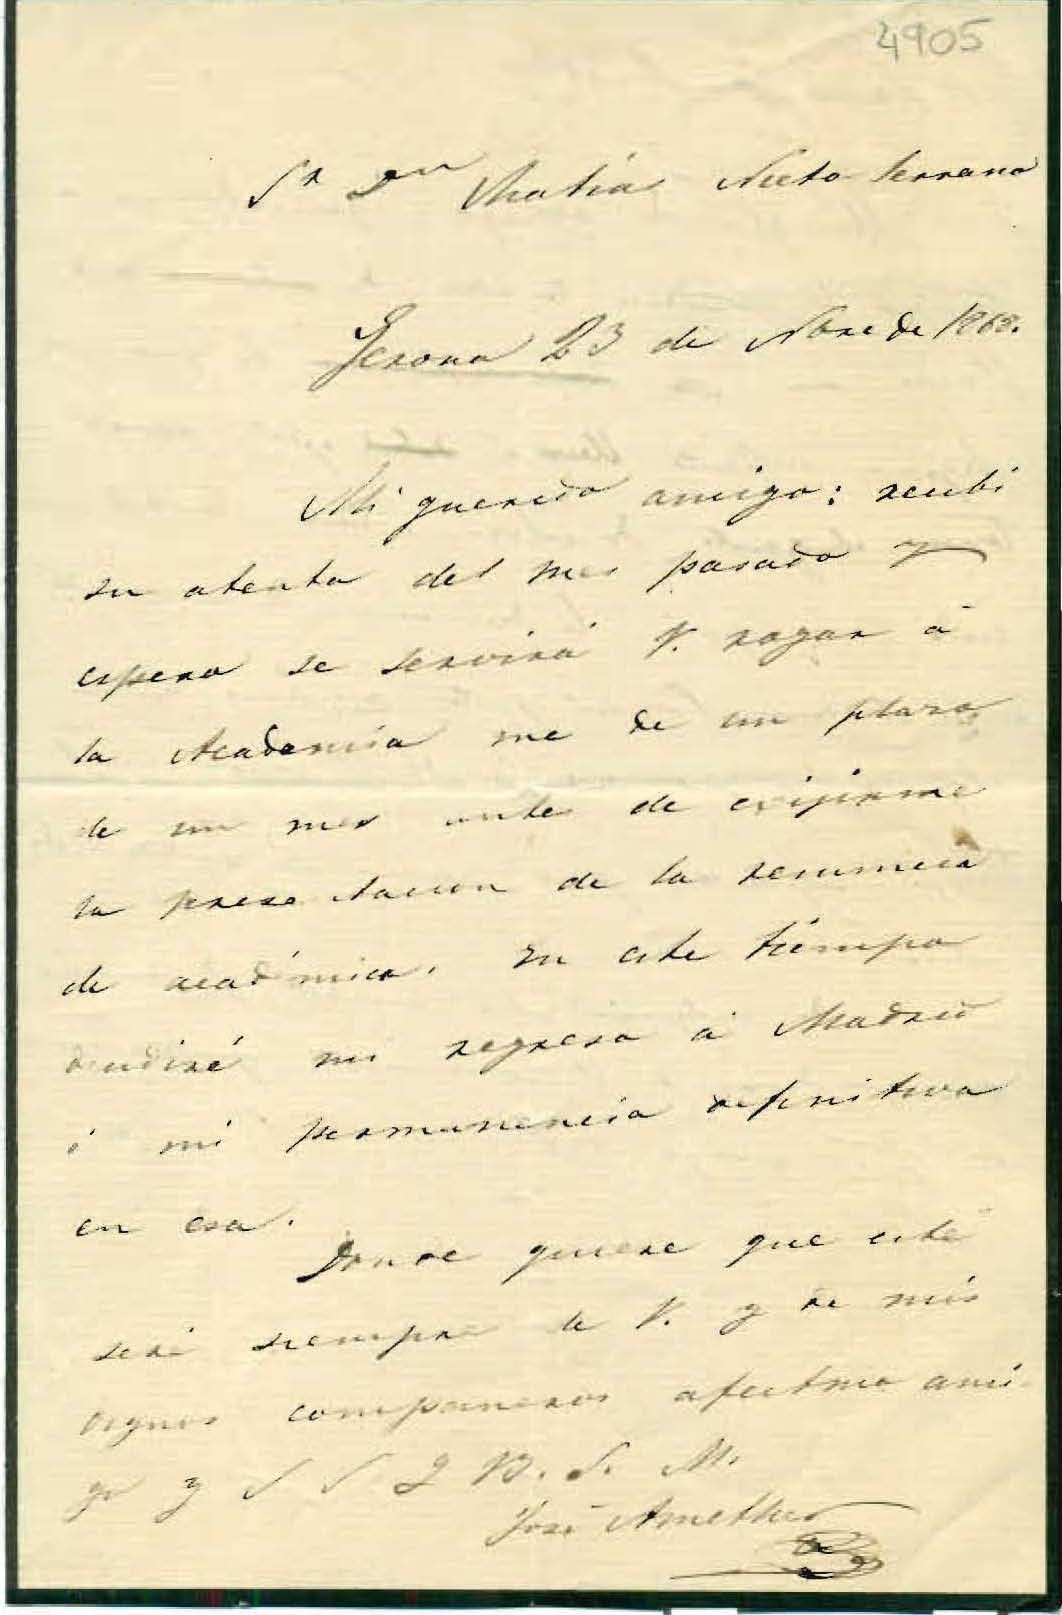 4905
Sr Dn Matías Nieto Serrano
Gerona 23 de Nbre de 1868.
Mi querido amigo: recibí
su atenta del mes pasado y
espero se servirá V. rogar á
la Academia me dé un plazo
de un mes antes de exijirme
la presentacion de la renuncia
de académico. En este tiempo
decidiré mi regreso á Madrid
ó mi permanencia definitiva
en esa.
Donde quiera que esté
seré siempre de V. y de mis
dignos compañeros afectmo ami
go y S S Q B. S. M.
José Ametller